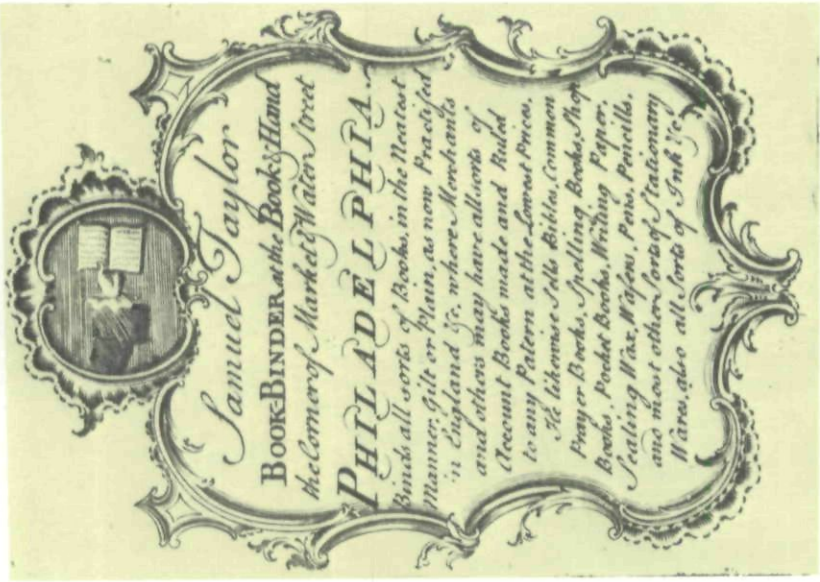 Samuel Taylor
BOOK-BINDER at the Book & Hand
the Corner of Market & Water Street
PHILADELPHIA.
Binds all Sorts of Books, in the Neatest
Manner, Gilt or Plain, as now Practised
in England &c. where Merchants
and others may have all sorts of
Account Books made and Ruled
to any Patern at the Lowest Prices.
He likewise Sells Bibles, Common
Prayer Books, Spelling Books, Shop
Books, Pocket Books, Writing Paper,
Sealing Wax, Wafers, Pens, Pencills,
and most other Sorts of Stationary
Wares also all Sorts of Ink &c.